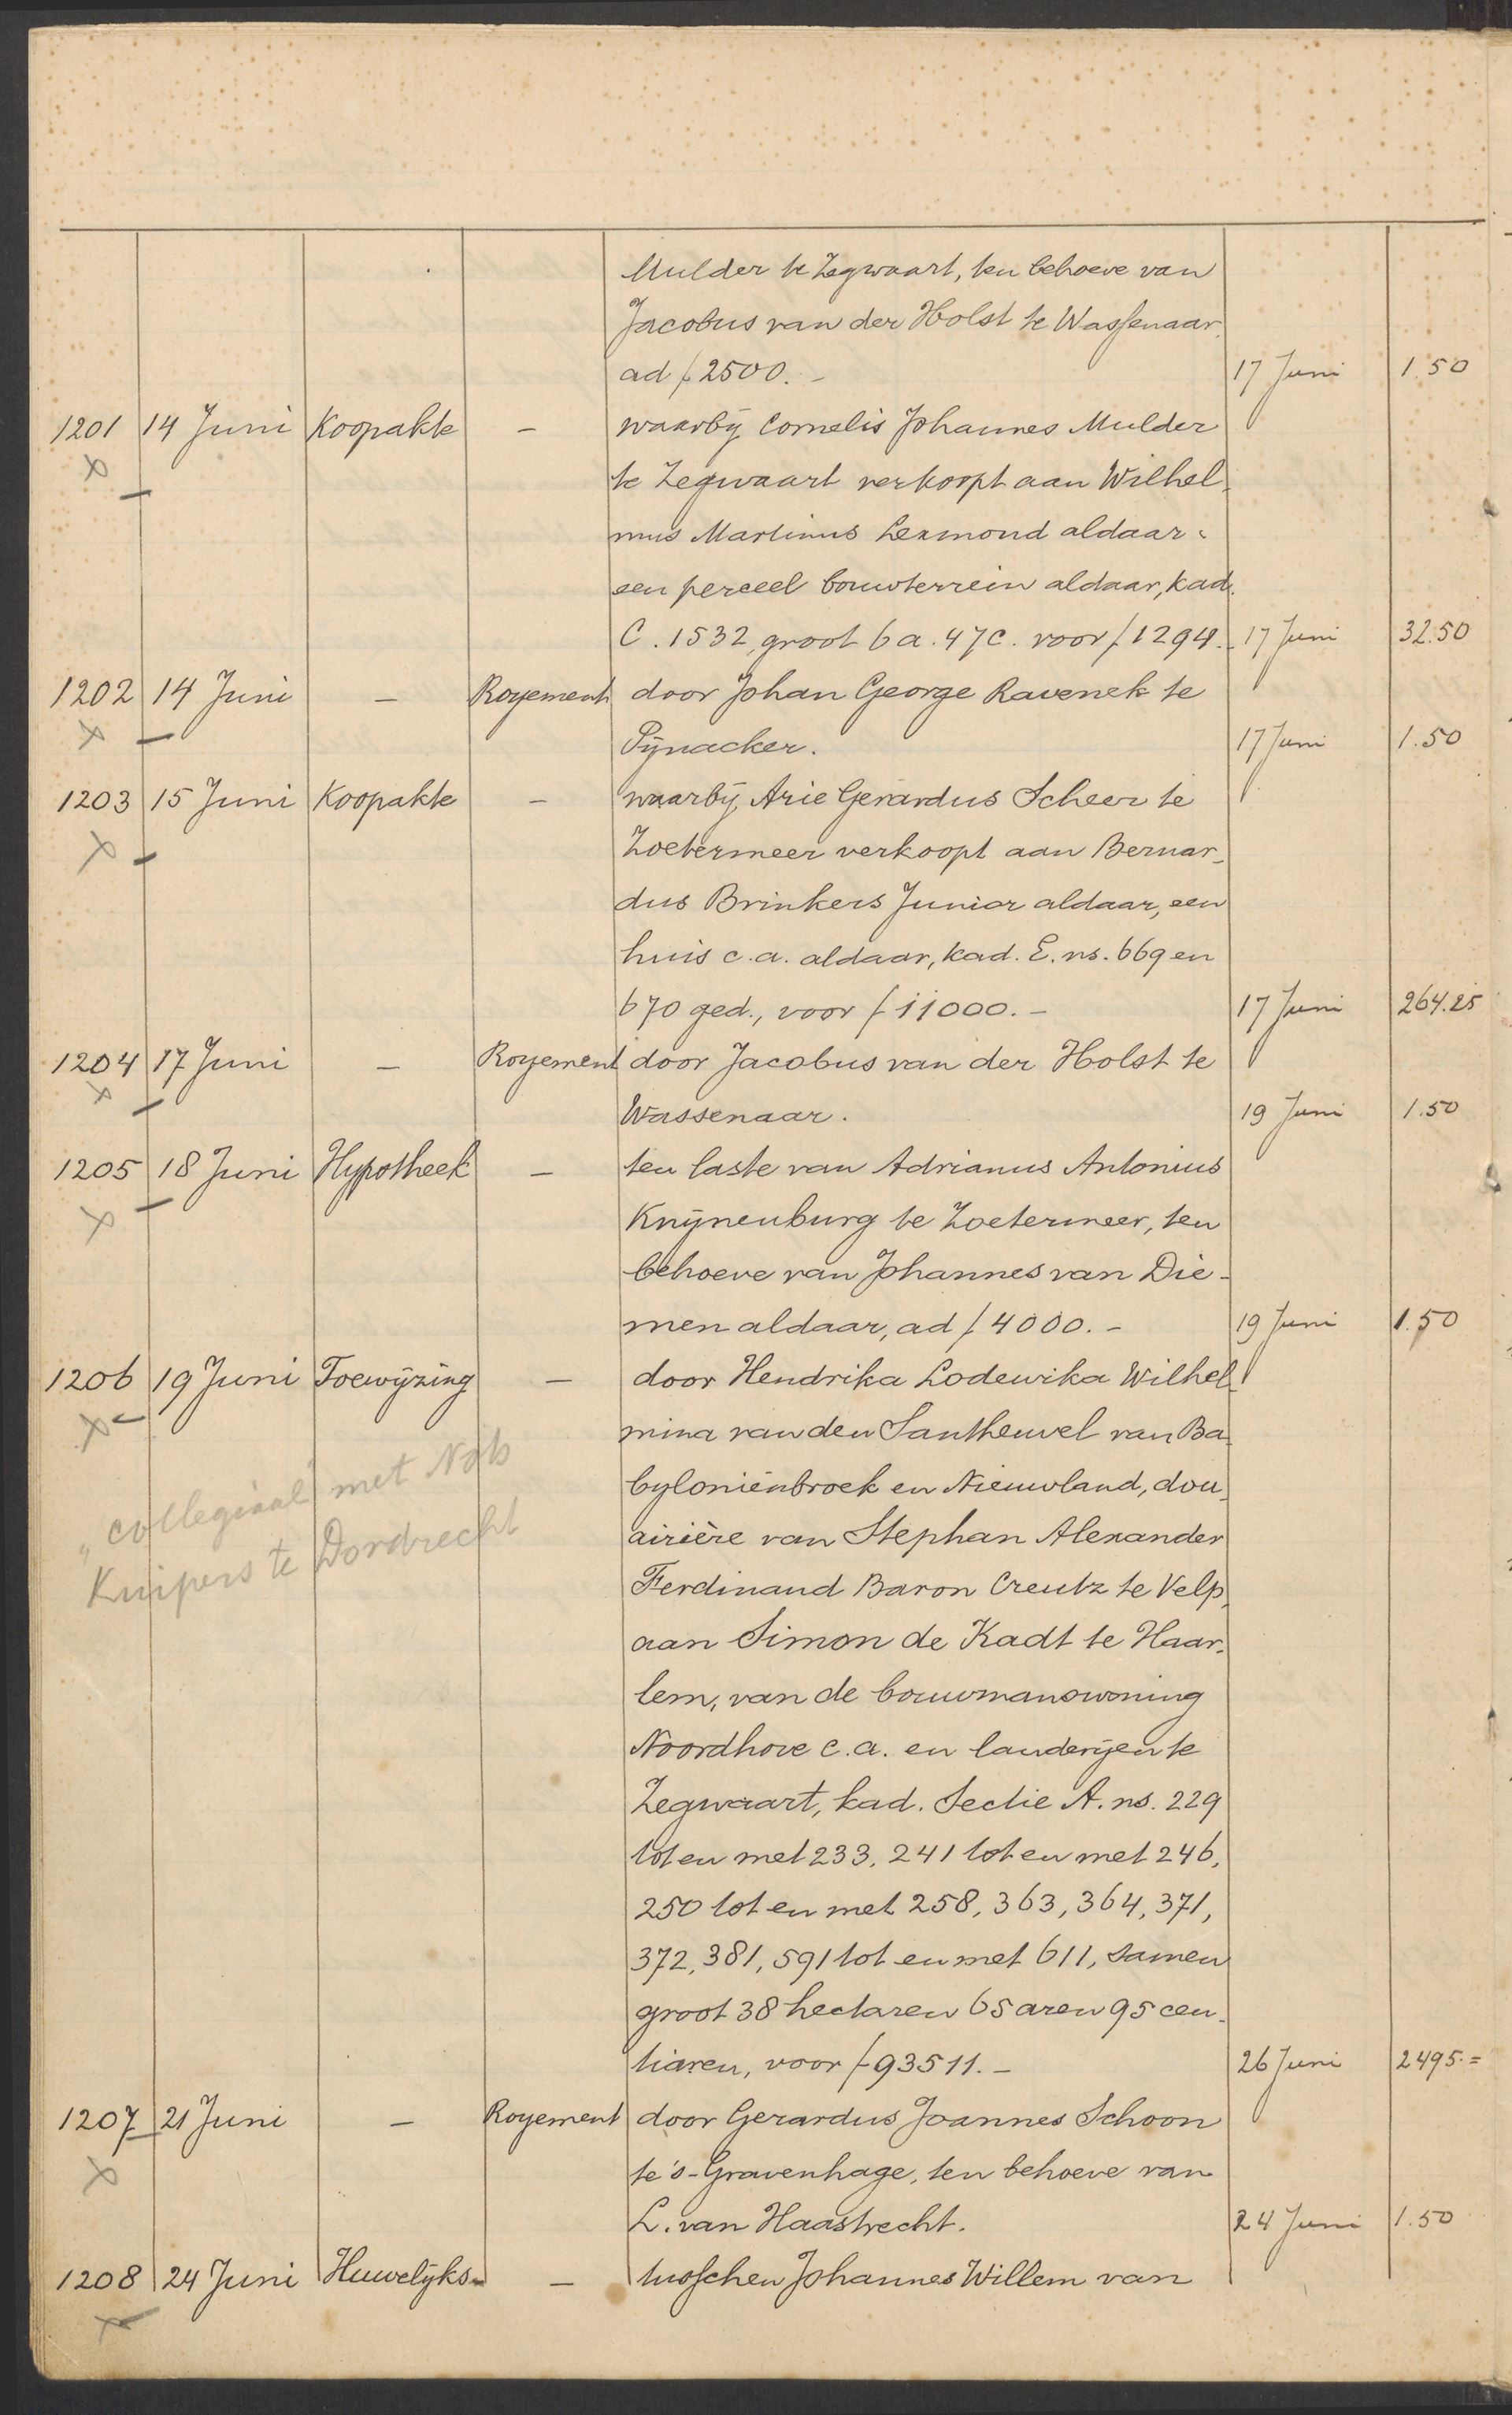 Mulder te Zegwaart, ten behoeve van
Jacobus van der Holst te Wassenaar,
ad ƒ 2500.- 17 Juni 1.50
1201 14 Juni Koopakte - waarbij Cornelis Johannes Mulder
te Zegwaart verkoopt aan Wilhel-
mus Martinus Lexmond aldaar
een perceel bouwterrein aldaar, kad.
C. 1532, groot 6 a. 47 c. voor ƒ 1294.- 17 Juni 32.50
1202 14 Juni - Royement door Johan George Ravenek te
Pijnacker. 17 Juni 1.50
1203 15 Juni Koopakte - waarbij Arie Gerardus Scheer te
Zoetermeer verkoopt aan Bernar-
dus Brinkers Junior aldaar, een
huis c.a. aldaar, kad. E. ns. 669 en
670 ged., voor ƒ 11000.- 17 Juni 264.25
1204 17 Juni - Royement door Jacobus van der Holst te
Wassenaar. 19 Juni 1.50
1205 18 Juni Hypotheek - ten laste van Adrianus Antonius
Knijnenburg te Zoetermeer, ten
behoeve van Johannes van Die-
men aldaar, ad ƒ 4000.- 19 Juni 1.50
1206 19 Juni Toewijzing - door Hendrika Lodewika Wilhel-
mina van den Santheuvel van Ba-
byloniënbroek en Nieuwland, dou-
airière van Stephan Alexander
Ferdinand Baron Creutz te Velp,
aan Simon de Kadt te Haar-
lem, van de bouwmanswoning
Noordhove c.a. en landerijen te
Zegwaart, kad. Sectie A. ns. 229
tot en met 233, 241 tot en met 246,
250 tot en met 258, 363, 364, 371,
372, 381, 591 tot en met 611, samen
groot 38 hectaren 65 aren 95 cen-
tiaren, voor ƒ 93511.- 26 Juni 2495.=
"collegiaal" met Nots
Kuipers te Dordrecht
1207 21 Juni - Royement door Gerardus Joannes Schoon
te 's-Gravenhage, ten behoeve van
L. van Haastrecht. 24 Juni 1.50
1208 24 Juni Huwelijks- - tusschen Johannes Willem van